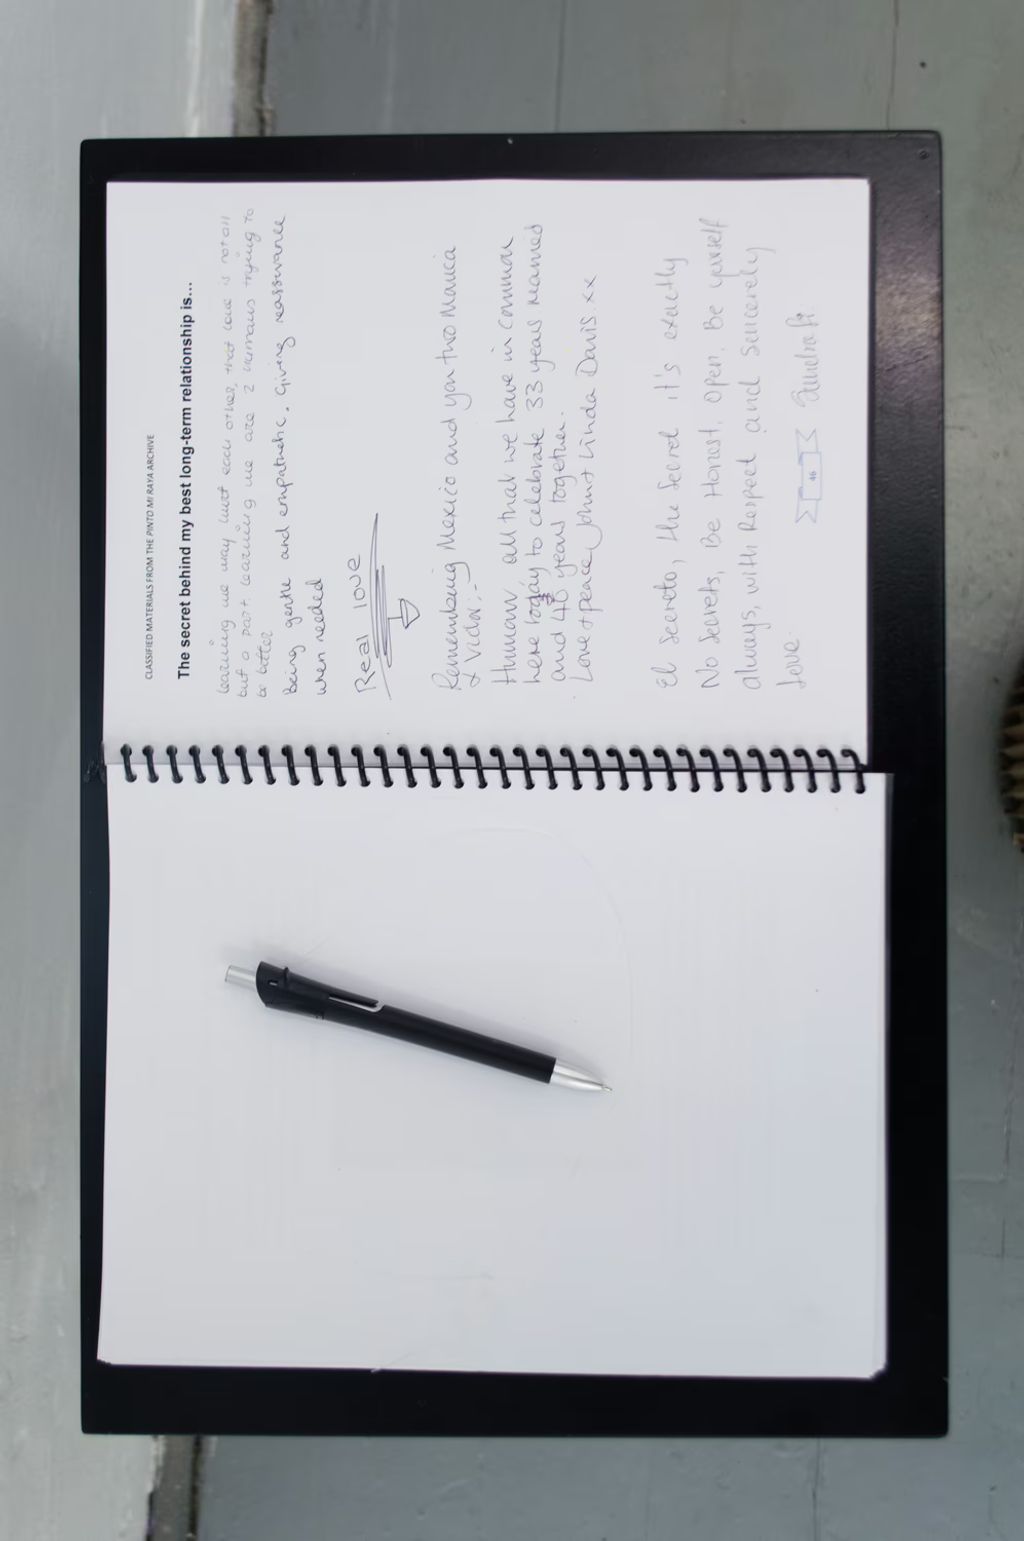 CLASSIFIED MATERIALS FROM THE PINTO MI RAYA ARCHIVE
The secret behind my best long-term relationship is...
learning we may hurt each other, that love is not all
but a part. learning we are 2 humans trying to
be better
Being gentle and empathetic. Giving reassurance
when needed
Real love
Remembering Mexico and you two Monica
& Victor:-
Human, all that we have in common
here today to celebrate 33 years married
and 40 years together.
Love & peace John & Linda Davis. xx
El secreto, the secret it's exactly
No Secrets, Be Honest, Open, Be yourself
always, with Respect and Sincerely
Love.
46